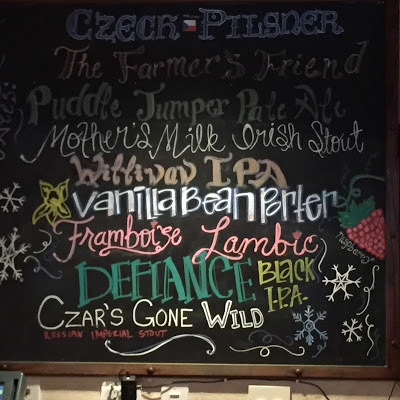 Czech Pilsner
The Farmer's Friend
Puddle Jumper Pale Ale
Mother's Milk Irish Stout
IPA
Vanilla Bean Porter
Framboise Lambic
Raspberry
DEFIANCE BLACK
I.P.A.
CZAR'S GONE WILD
RUSSIAN IMPERIAL STOUT